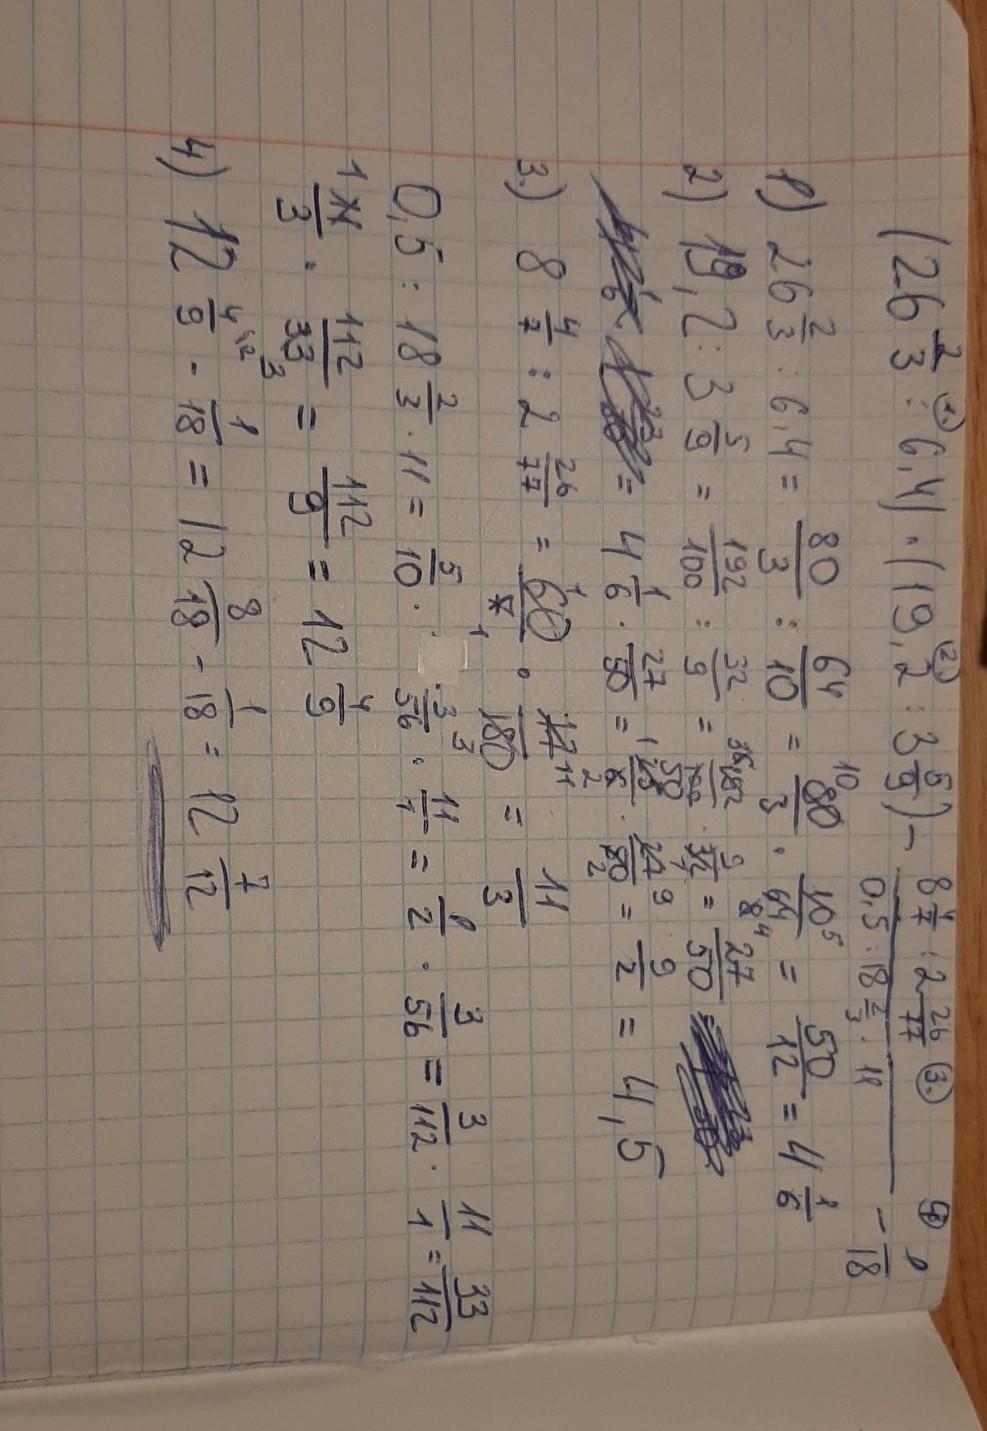 (26 2/3 : 6,4) · (19,2 : 3 5/9) - (8 4/7 : 2 26/77)/(0,5 : 18 2/3 · 11) - 1/18
1) 26 2/3 : 6,4 = 80/3 : 64/10 = 80/3 · 10/64 = 50/12 = 4 1/6
2) 19,2 : 3 5/9 = 192/100 : 32/9 = 192/100 · 9/32 = 27/50 =
= 4 1/6 · 27/50 = 25/6 · 27/50 = 9/2 = 4,5
3.) 8 4/7 : 2 26/77 = 60/7 · 77/180 = 11/3
0,5 : 18 2/3 · 11 = 5/10 · 3/56 · 11/1 = 1/2 · 3/56 = 3/112 · 11/1 = 33/112
11/3 · 112/33 = 112/9 = 12 4/9
4) 12 4/9 - 1/18 = 12 8/18 - 1/18 = 12 7/12